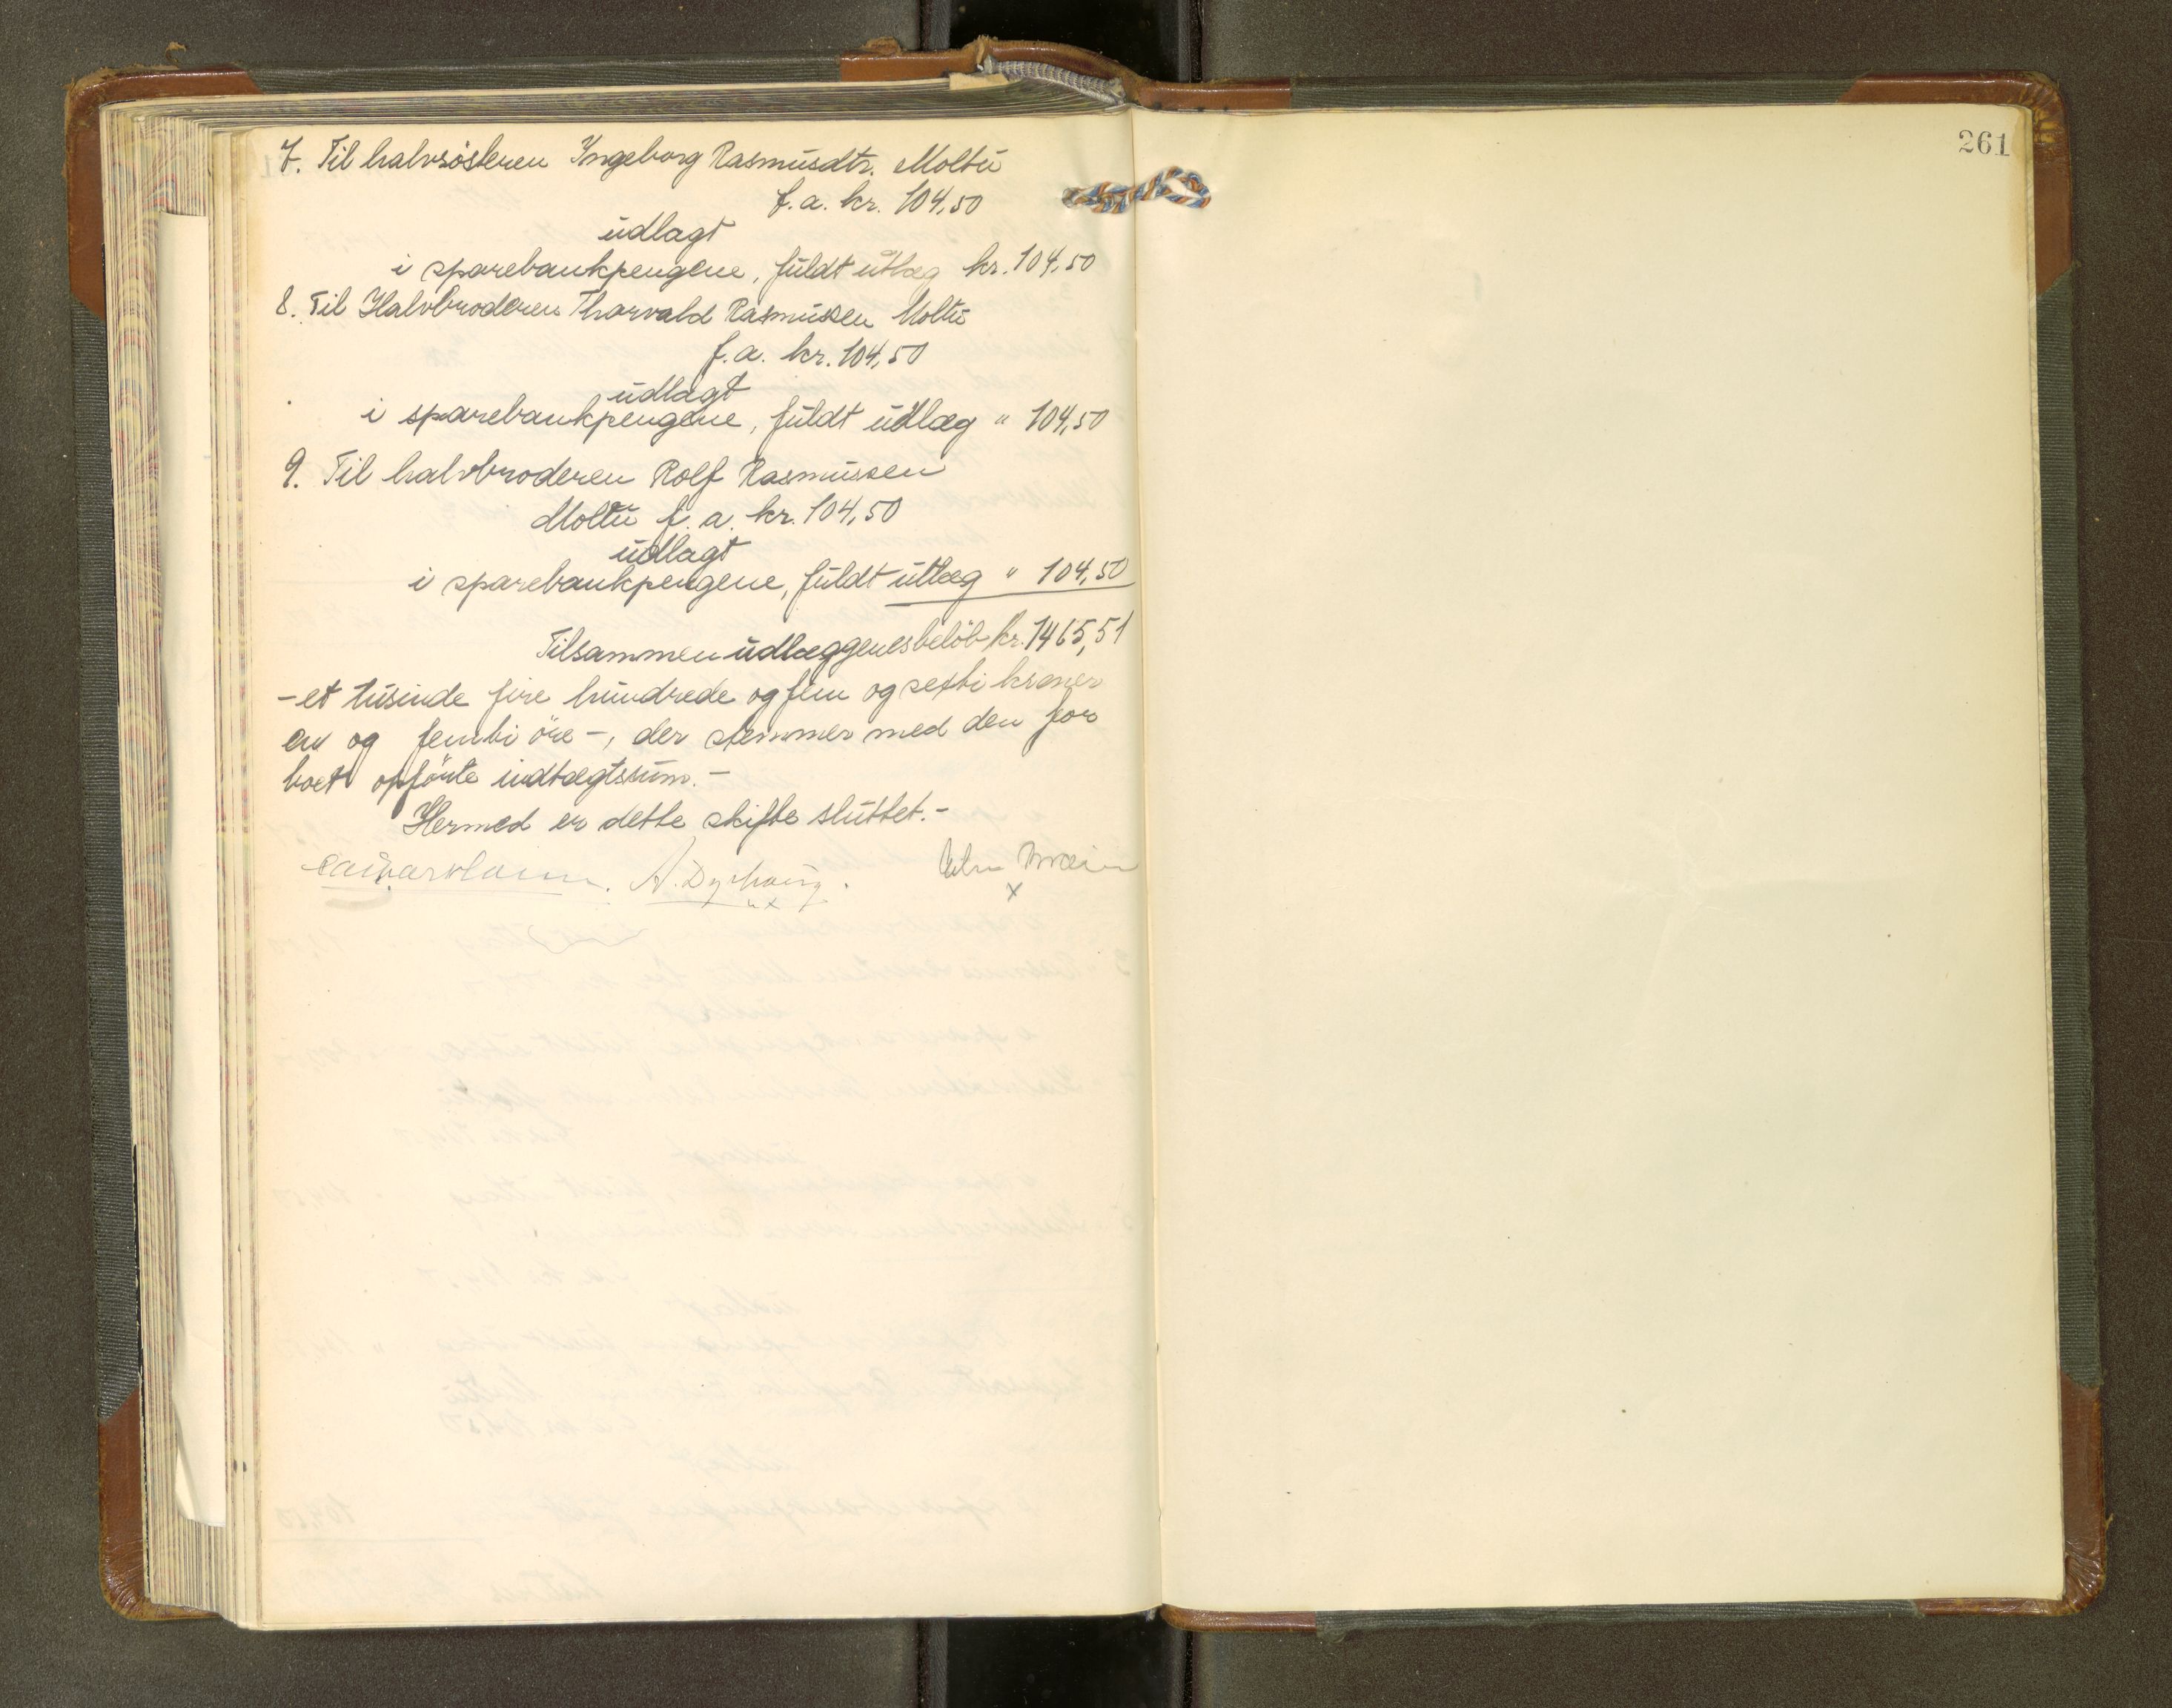 7. Til halvsösteren Ingeborg Rasmusdtr. Moltu
f.a. kr. 104,50
udlagt
i sparebankpengene, fuldt utlæg kr. 104,50
8. Til Halvbroderen Thorvald Rasmussen Moltu
f.a. kr. 104,50
udlagt
i sparebankpengene, fuldt udlæg " 104,50
9. Til halvbroderen Rolf Rasmussen
Moltu f.a. kr. 104,50
udlagt
i sparebankpengene, fuldt utlæg " 104,50
Tilsammen udlæggenes belöb kr. 1465,51
- et tusinde fire hundrede og fem og sexti kroner
en og femti öre -, der stemmer med den for
boet opförte indtægtssum. -
Hermed er dette skifte sluttet. -
A. Dyrhaug.
x
x
261